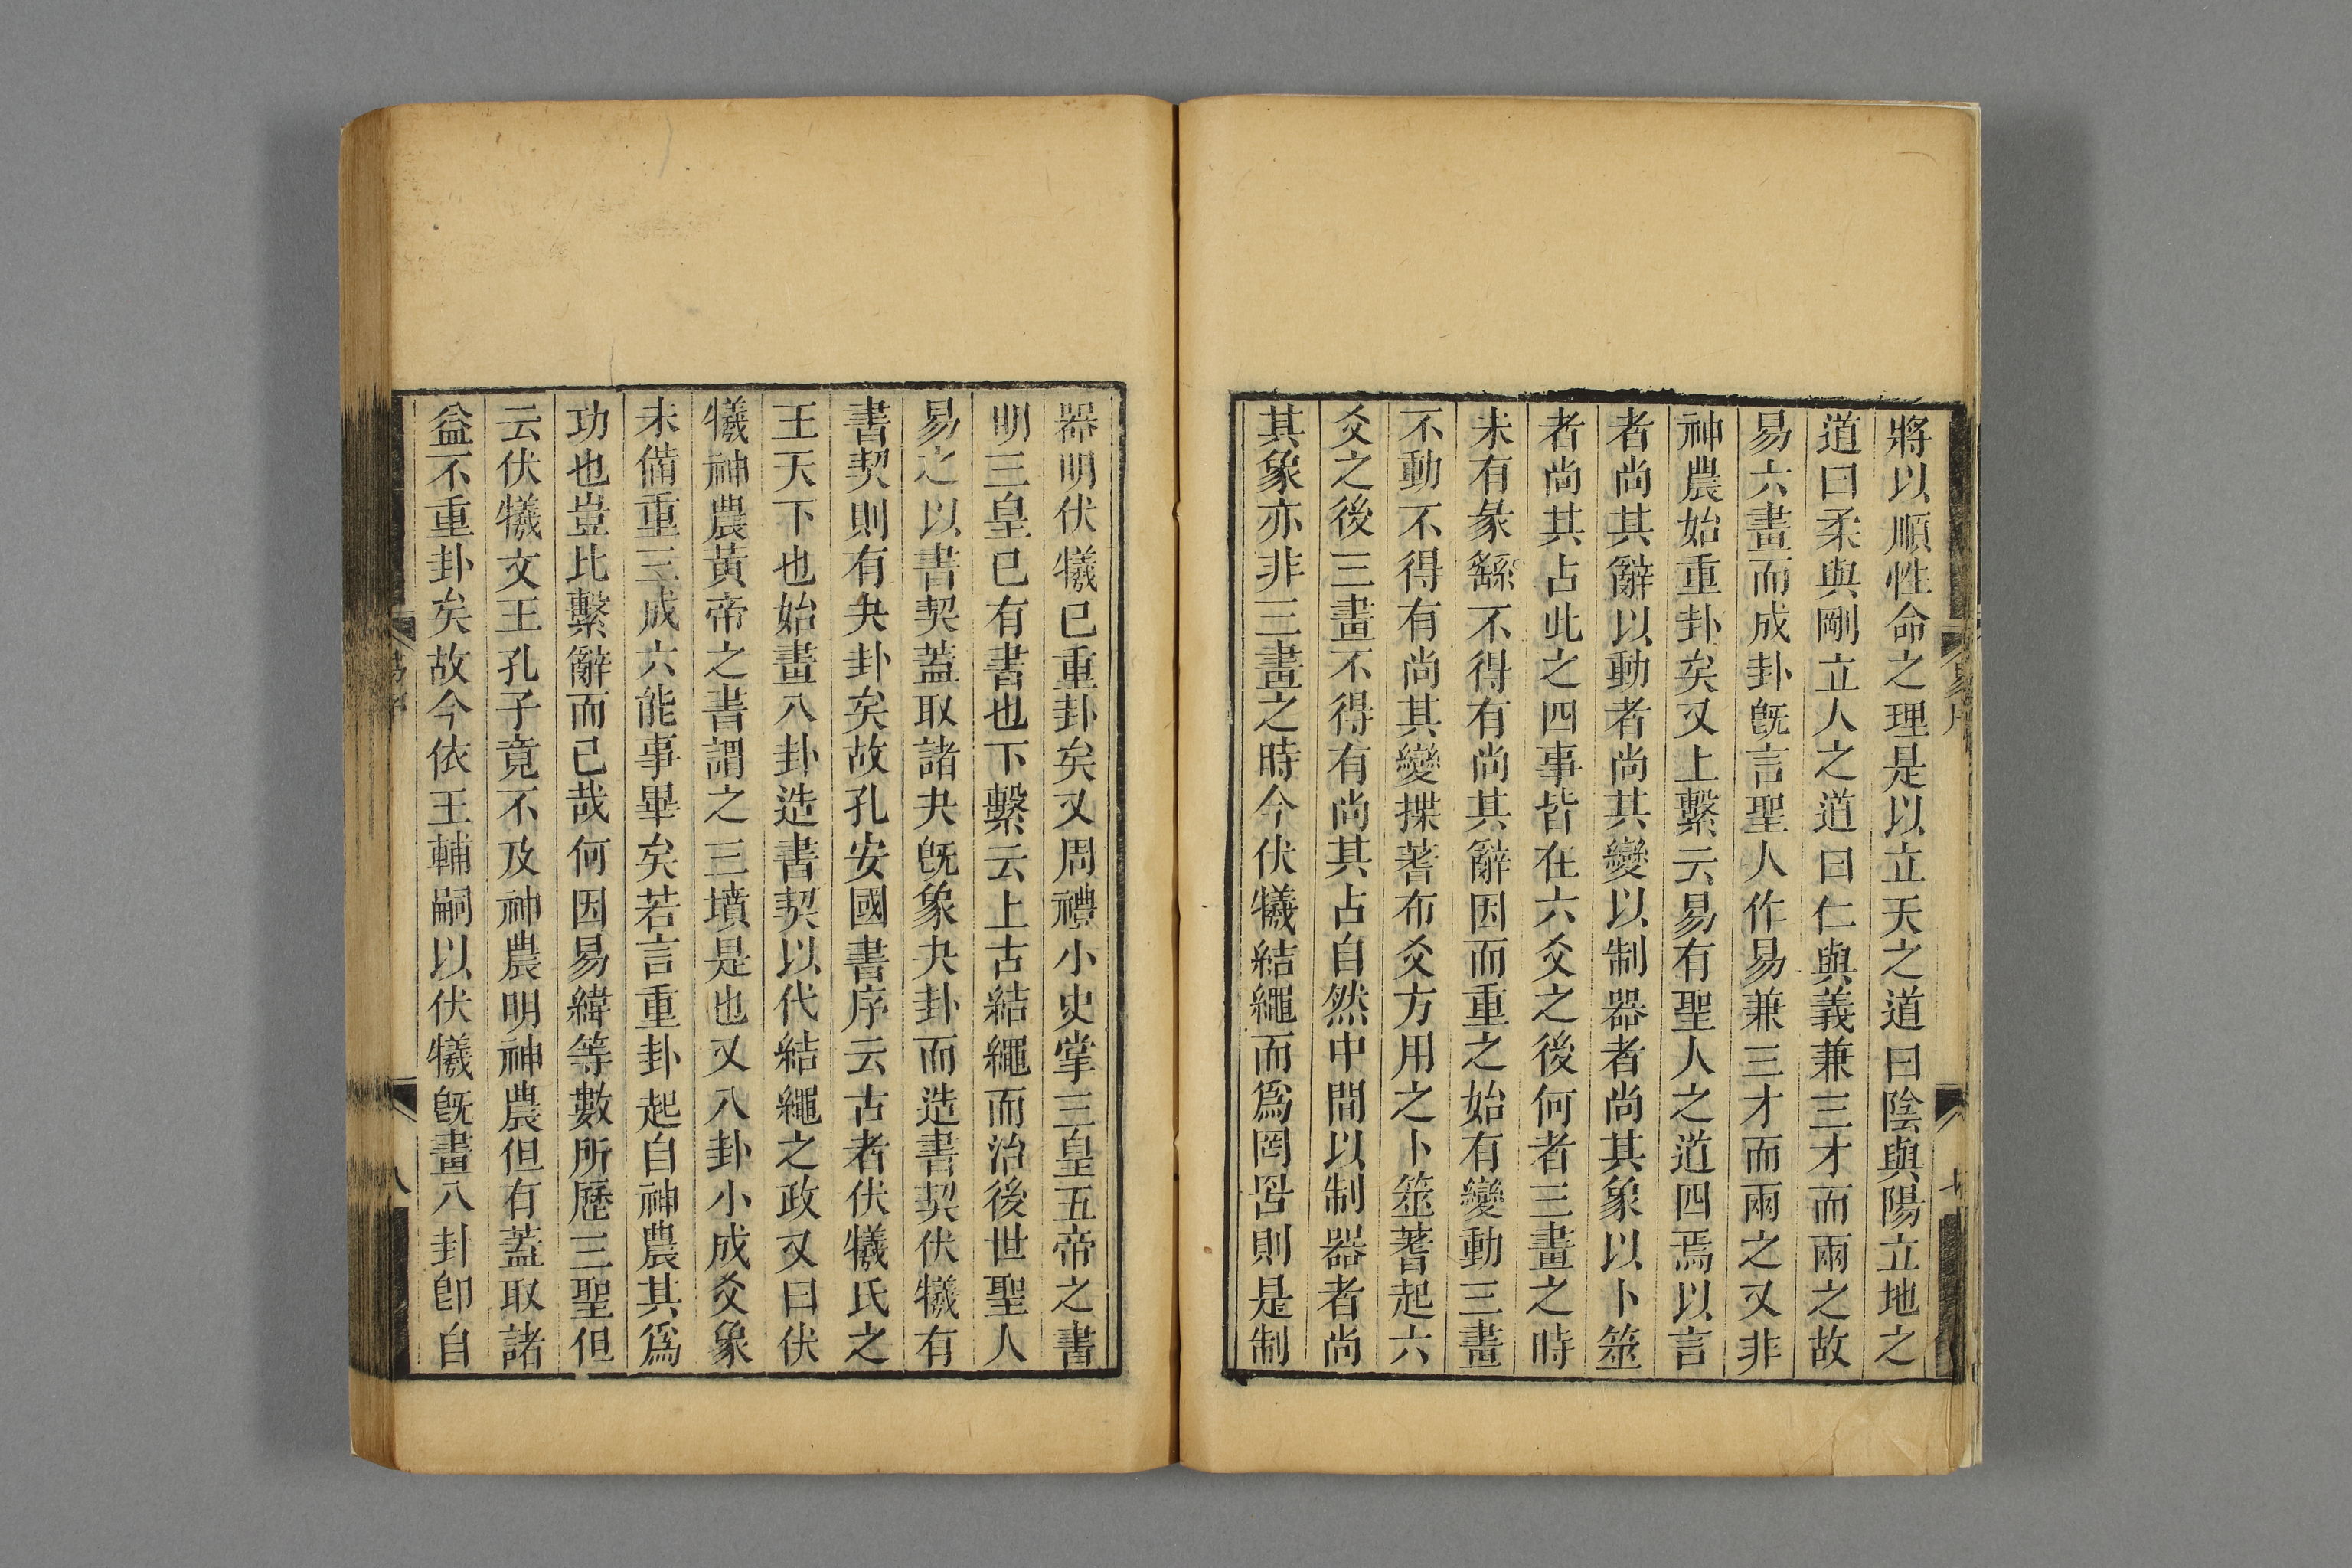 將以順性命之理是以立天之道曰陰與陽立地之
道曰柔與剛立人之道曰仁與義兼三才而兩之故
易六畫而成卦既言聖人作易兼三才而兩之又非
神農始重卦矣又上繫云易有聖人之道四焉以言
者尚其辭以動者尚其變以制器者尚其象以卜筮
者尚其占此之四事皆在六爻之後何者三畫之時
未有彖繇不得有尚其辭因而重之始有變動三畫
不動不得有尚其變揲蓍布爻方用之卜筮蓍起六
爻之後三畫不得有尚其占自然中間以制器者尚
其象亦非三畫之時今伏犧結繩而爲罔罟則是制
器明伏犧已重卦矣又周禮小史掌三皇五帝之書
明三皇已有書也下繫云上古結繩而治後世聖人
易之以書契蓋取諸夬既象夬卦而造書契伏犧有
書契則有夬卦矣故孔安國書序云古者伏犧氏之
王天下也始畫八卦造書契以代結繩之政又曰伏
犧神農黃帝之書謂之三墳是也又八卦小成爻象
未備重三成六能事畢矣若言重卦起自神農其爲
功也豈比繫辭而已哉何因易緯等數所歷三聖但
云伏犧文王孔子竟不及神農明神農但有蓋取諸
益不重卦矣故今依王輔嗣以伏犧既畫八卦卽自
易序
七
八